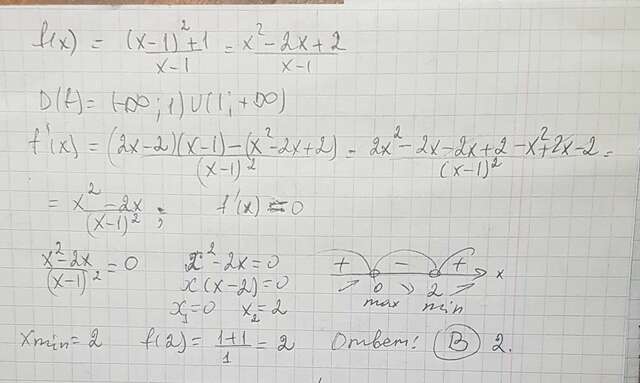 f(x) = ((x-1)²+1)/(x-1) = (x²-2x+2)/(x-1)
D(f) = (-∞; 1) ∪ (1; +∞)
f'(x) = ((2x-2)(x-1)-(x²-2x+2))/(x-1)² = (2x²-2x-2x+2-x²+2x-2)/(x-1)² =
= (x²-2x)/(x-1)²; f'(x) = 0
(x²-2x)/(x-1)² = 0
x²-2x=0
x(x-2)=0
x₁=0 x₂=2
+ - + x
0 2
max min
xmin = 2 f(2) = (1+1)/1 = 2 Ответ: В 2.